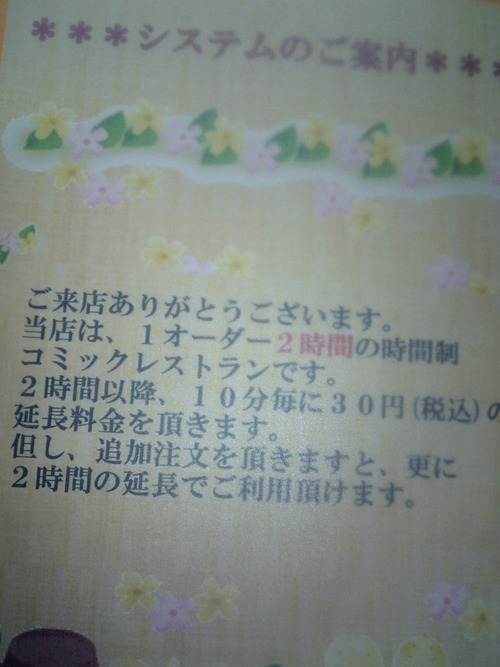 ＊＊＊システムのご案内＊＊＊
ご来店ありがとうございます。
当店は、１オーダー２時間の時間制
コミックレストランです。
２時間以降、１０分毎に３０円(税込)の
延長料金を頂きます。
但し、追加注文を頂きますと、更に
２時間の延長でご利用頂けます。